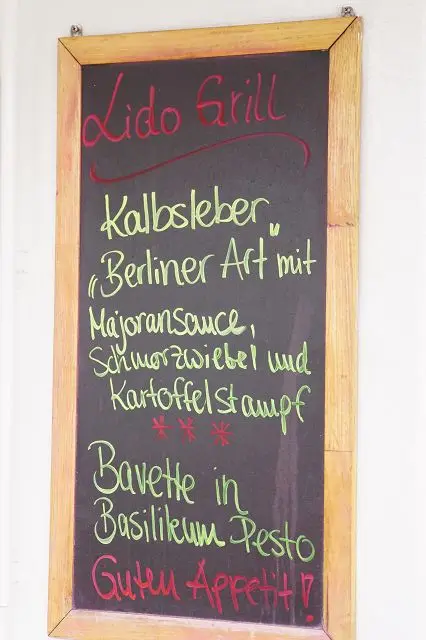 Lido Grill
Kalbsleber
„Berliner Art" mit
Majoransauce,
Schmorzwiebel und
Kartoffelstampf
***
Bavette in
Basilikum Pesto
Guten Appetit!